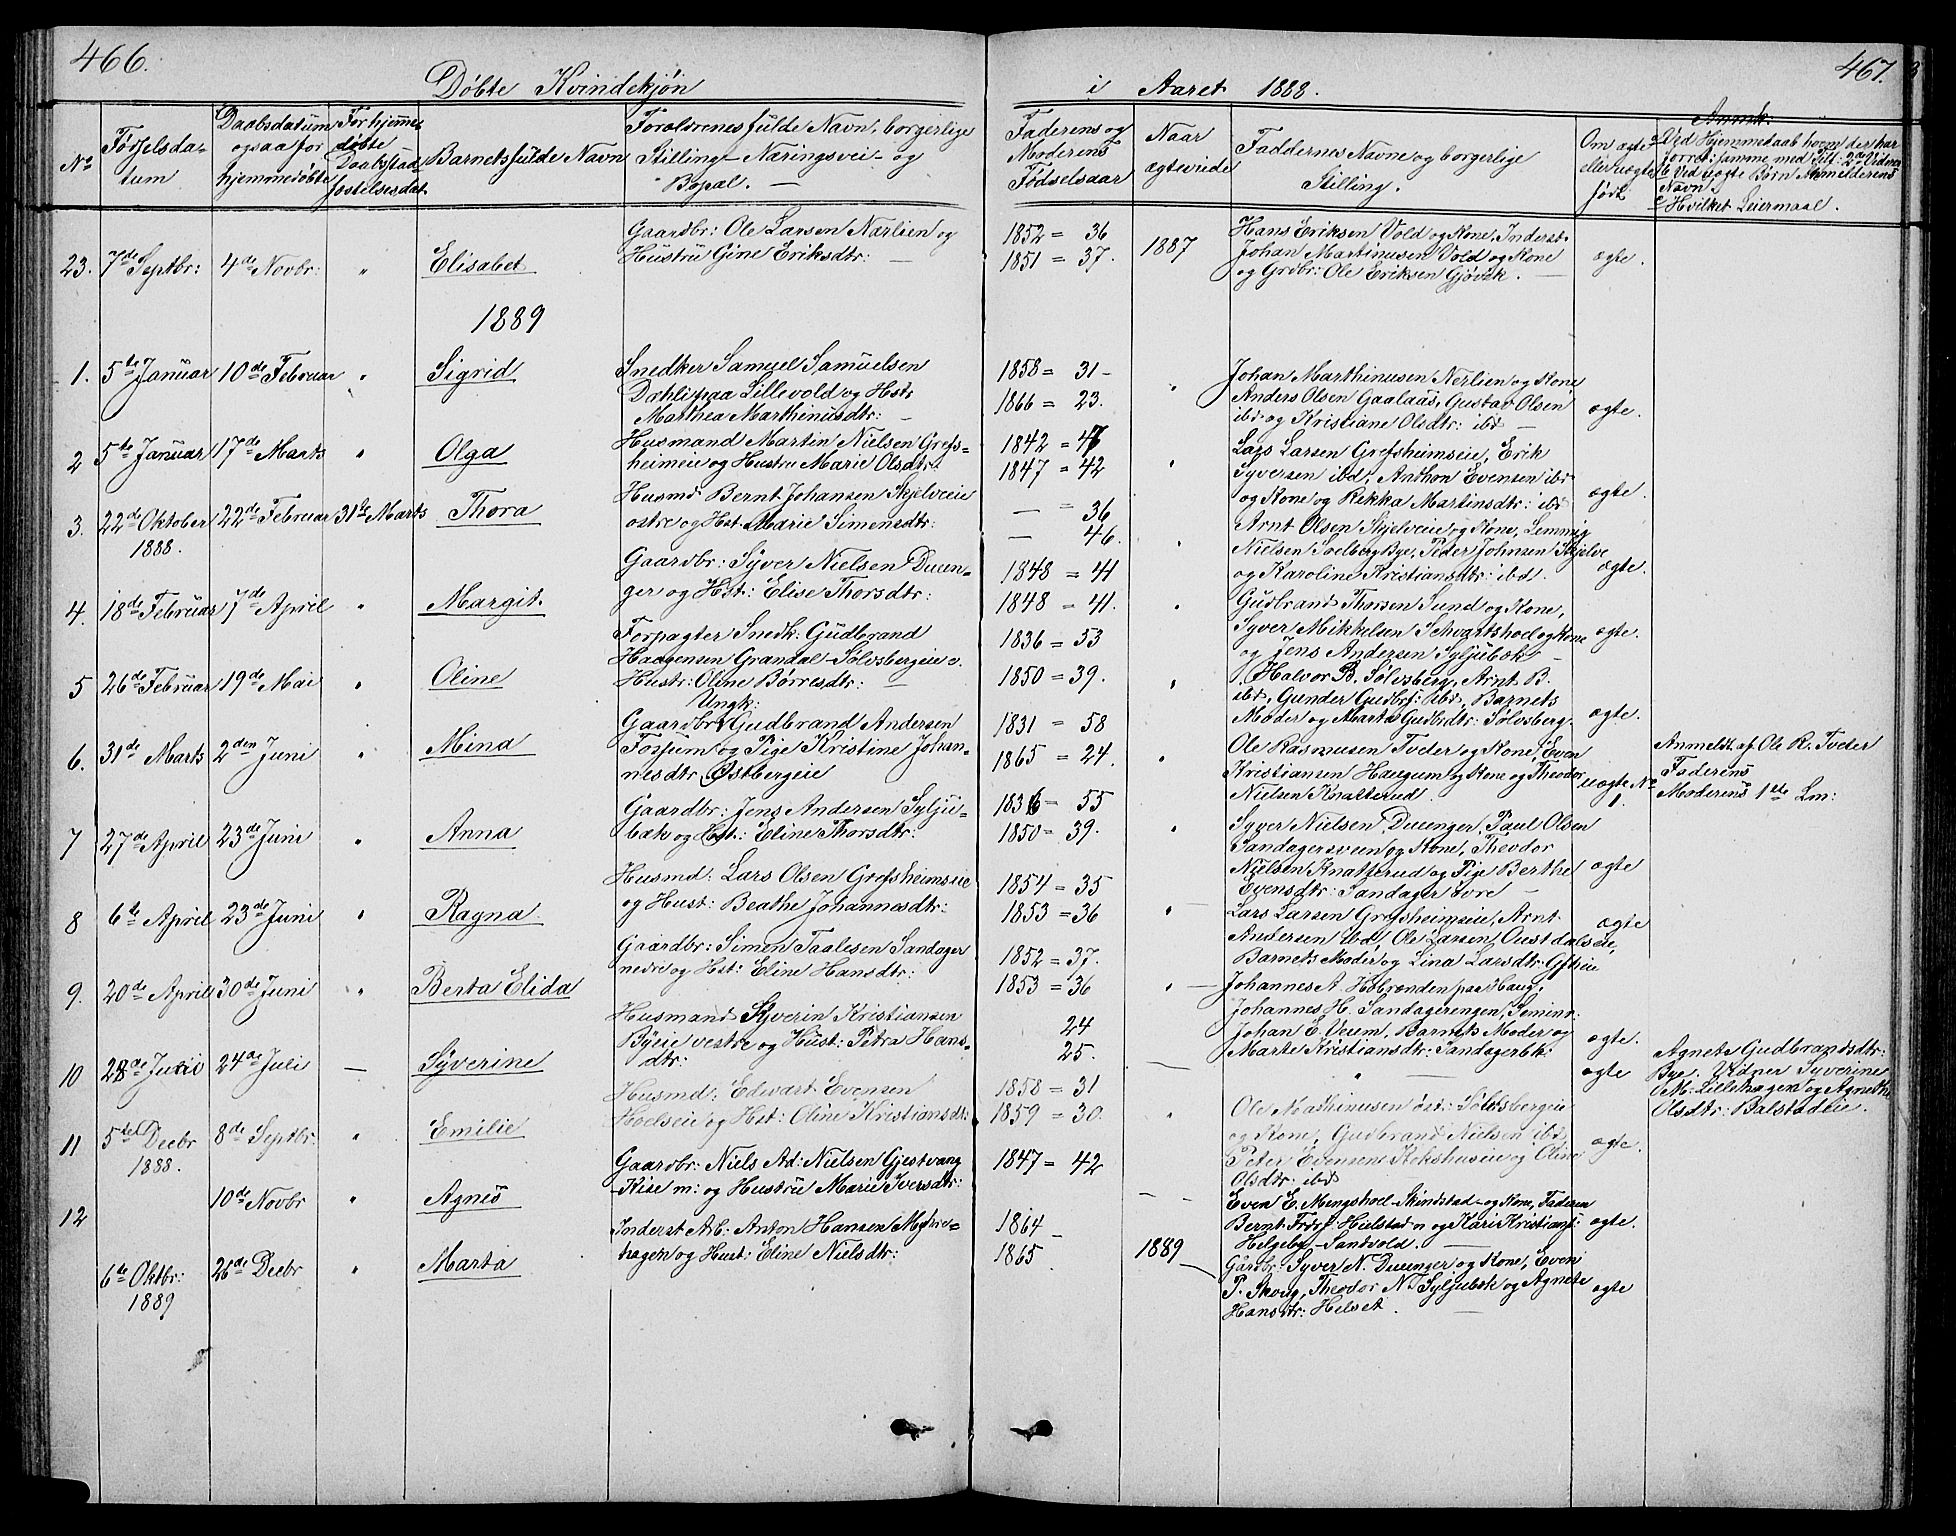 466.
Döbte Kvindekjön
No
Förselsda-
tum
Daabsdatum
ogsaa for
hjemmedöbte
For hjemme
döbte
Daabsstad-
fæstelsesdat.
Barnets fulde Navn
Foroldrenes fulde Navn, borgerlige
Stilling - Næringsvei - og
Bopæl. —
23. 7de Septbr: 4de Novbr: " Elisabet
Gaardbr: Ole Larsen Nærlien og
Hustru Gine Eriksdtr: —
1889
1. 5te Januar 10de Februar " Sigrid
Snedker Samuel Samuelsen
Dæhli paa Lillevold og Hstr
Marthea Marthinusdtr: —
2 5te Januar 17de Marts " Olga
Husmand Martin Nielsen Grefs-
heimeie og Hustru Marie Olsdtr.
3. 22de Oktober 22de Februar 31te Marts Thora
1888.
Husmd Bernt Johansen Skjelveie
ostre og Hst. Marie Simensdtr:
4. 18de Februar 7de April " Margit.
Gaardbr: Syver Nielsen Duen-
ger og Hst.: Elise Thorsdtr:
5 26de Februar 19de Mai " Oline
Forpagter Snedk: Gudbrand
Haagensen Grandal - Sølvsbergeie o.
Hustr: Oline Børresdtr: —
6. 31de Marts 2den Juni " Mina
Ungk:
Gaardbr: Gudbrand Andersen
Fossum og Pige Kristine Johan-
nesdtr Østbergeie
7 27de April 23de Juni " Anna
Gaardbr: Jens Andersen Sylju-
bæk og Hst.: Eline Thorsdtr:
8 6te April 23de Juni " Ragna
Husmd: Lars Olsen Grefsheimseie
og Hust: Beathe Johannesdtr:
9. 20de April 30de Juni " Berta Elida
Gaardbr: Simon Taalesen Sandager
nedre og Hst: Eline Hansdtr:
10 28de Juni 24de Juli — Syverine
Husmand Syverin Kristiansen
Byeie vestre og Hust: Petra Hans-
dtr:
11 5te Decbr 8de Septbr: " Emilie
1888.
Husmd: Edvart Evensen
Hoelseie og Hst: Oline Kristiansdtr:
12 10de Novbr " Agnes
Gaardbr: Niels Ad: Nielsen Gjestvang
-Kise m: og Hustru Marie Iversdtr:
6te Oktbr: 26de Decbr " Marta
1889
Inderst Arb: Anton Hansen
hagen og Hust: Eline Nielsdtr:
467.
i Aaret 1888.
Faderens og
Moderens
Födselsaar
Naar
ægteviede
Faddernes Navne og borgerlige
Stilling.
Om ægte
eller uægte
født
Anmk.
Ved Hjemmedaab hvem der har
forret: samme med Tit: 2de Vidner
b Ved uægte Børn Anmelderens
Navn
c Hvilket Leiermaal.
1852 = 36
1851 = 37.
1887
Hans Eriksen Vold og Kone, Inderst.
Johan Martinusen Vold og Kone
og Grdbr: Ole Eriksen Gjøvik. —
ægte.
1858 = 31 -
1866 = 23.
"
Johan Marthinusen Nerlien og Kone,
Anders Olsen Gaalaas, Gustav Olsen
ibd: og Kristiane Olsdtr: ibd —
ægte.
1842 = 47
1847 = 42
"
Lars Larsen Grefsheimseie, Erik
Syversen ibd, Anthon Evensen ibd
og Kone og Rikka Martinsdtr: ibd
ægte.
— = 36
— 46.
"
Arnt Olsen Skjelveie og Kone, Lemmig
Nielsen Soelberg Bye, Peder Johnsen Skjelve
og Karoline Kristiansdtr: ibd.
ægte.
1848 = 41
1848 = 41.
"
Gudbrand Thorsen Sund og Kone,
Syver Mikkelsen Schvartshoel og Kone
og Jens Andersen Syljubæk —
ægte.
1836 = 53
1850 = 39.
"
Halvor B. Sølvsberg, Arnt B.
ibd, Gunder Gudbrs: ibd, Barnets
Moder og Marta Gudbdtr: Sølvsberg.
ægte.
1831 = 58
1865 = 24.
"
Ole Rasmusen Tveter og Kone, Even
Kristiansen Haugum og Kone og Theodor
Nielsen Knatterud.
uægte No
1.
Anmeldt af Ole R. Tveter
Faderens
Moderens 1ste Lm:
1836 - 55
1850 = 39.
"
Syver Nielsen Duenger, Paul Olsen
Sandagersveen og Kone, Theodor
Nielsen Knatterud og Pige Berthe
Evensdtr: Sandager övre —
ægte
1854 = 35
1853 = 36
"
Lars Larsen Grefsheimseie, Arnt
Andersen ibd, Ole Larsen
Barnets Moder og Lina Larsdtr:
ægte
1852 = 37.
1853 = 36
"
Johannes A. paa Haug,
Johannes H. Sandagerengen, Seminr:
Johan E. Veum, Barnets Moder og
Marte Kristiansdtr: Sandagerbk:
ægte.
24
25.
—
"
ægte
Agnete Gudbrandsdtr:
Bye. Vidner Syverine
M: Lillehagen og Agnethe
Olsdtr: Balstadeie.
1858 = 31
1859 = 30.
"
Ole Mathinusen öst: Sølvsbergeie
og Kone, Gudbrand Nielsen ibd,
Peter Evensen og Oline
Olsdtr: ibd
ægte.
1847 = 42
— -
Even E. Mengshoel - Skindstad - og Kone, Faderen
Bernt Hielstad n og Kari Kristians:
Helgeby - Sandvold. —
ægte.
1864 —
1865 .
1889
Gårdbr: Syver N. Duenger og Kone, Even
P. Skoug, Theodor N. Syljubæk og Agnete
Hansdtr: Helset. —
ægte